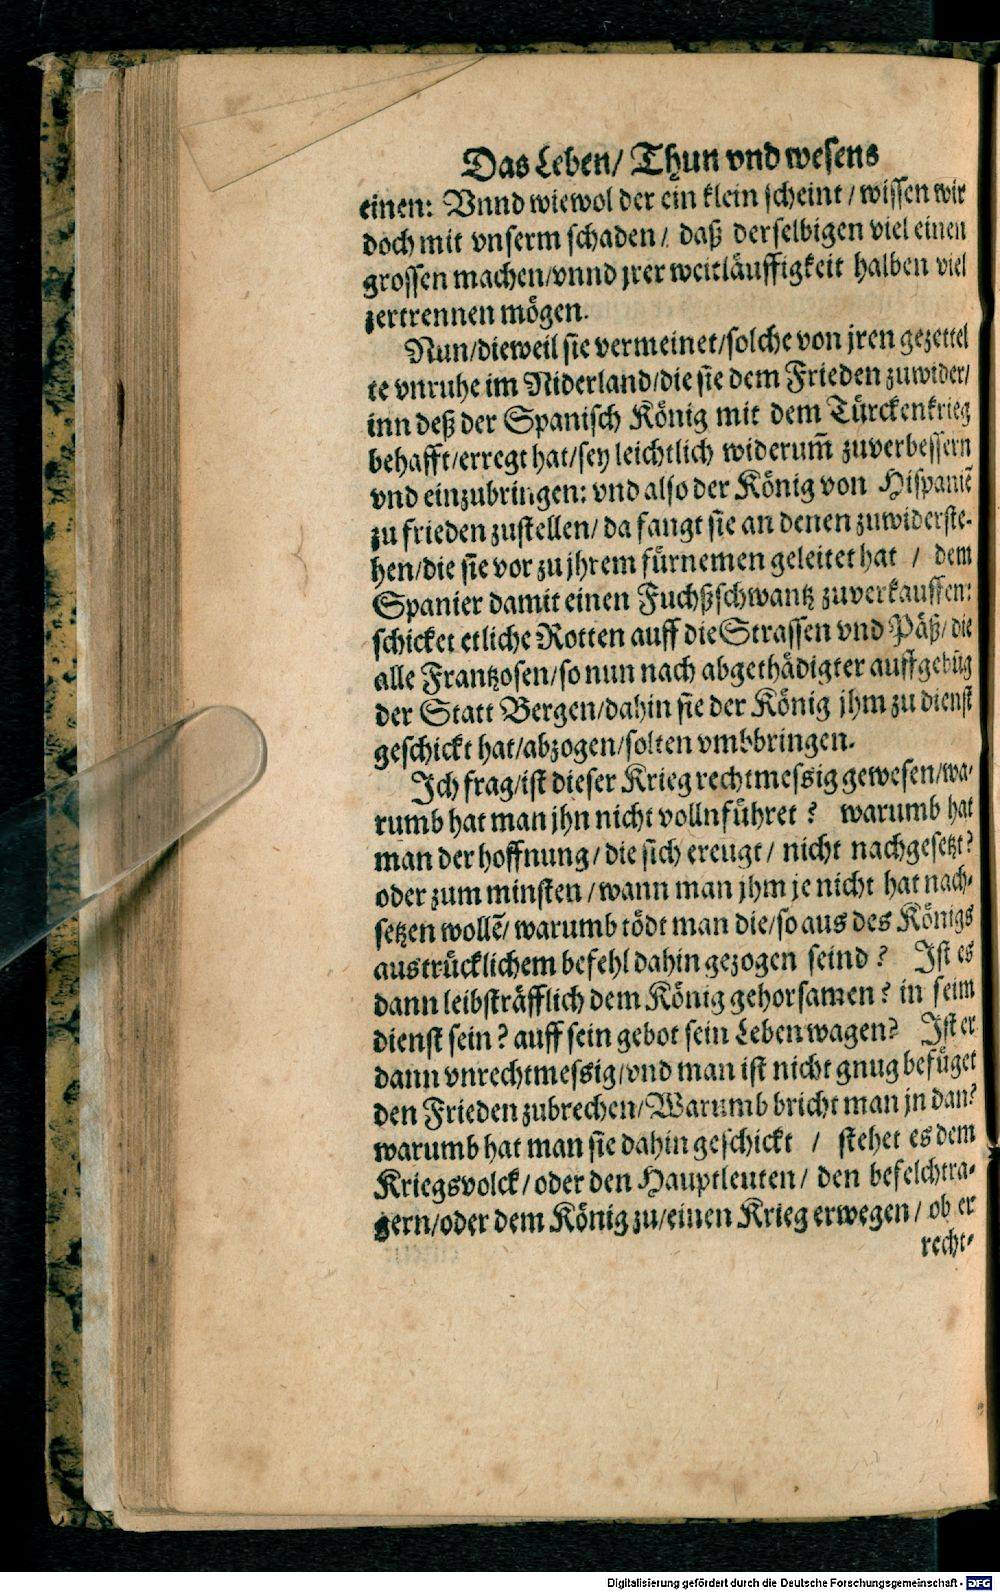 Das Leben/ Thun vnd wesens
einen: Vnnd wiewol der ein klein scheint / wissen wir
doch mit vnserm schaden / daß derselbigen viel einen
grossen machen/vnnd jrer weitläuffigkeit halben viel
zertrennen mögen.
Nun/dieweil sie vermeinet/solche von jren gezettel
te vnruhe im Niderland/die sie dem Frieden zuwider/
inn deß der Spanisch König mit dem Türckenkrieg
behafft/erregt hat/sey leichtlich widerum̃ zuverbessern
vnd einzubringen: vnd also der König von Hispaniẽ
zu frieden zustellen/ da fangt sie an denen zuwiderste-
hen/die sie vor zu jhrem fürnemen geleitet hat / dem
Spanier damit einen Fuchßschwantz zuverkauffen:
schicket etliche Rotten auff die Strassen vnd Päß/ die
alle Frantzosen/so nun nach abgethädigter auffgebũg
der Statt Bergen/dahin sie der König jhm zu dienst
geschickt hat/abzogen/solten vmbbringen.
Ich frag/ist dieser Krieg rechtmessig gewesen/wa-
rumb hat man jhn nicht vollnführet ? warumb hat
man der hoffnung/die sich ereugt/ nicht nachgesetzt?
oder zum minsten /wann man jhm je nicht hat nach-
setzen wollẽ/ warumb tödt man die/so aus des Königs
austrücklichem befehl dahin gezogen seind ? Ist es
dann leibsträfflich dem König gehorsamen ? in seim
dienst sein ? auff sein gebot sein Leben wagen? Ist er
dann vnrechtmessig/vnd man ist nicht gnug befüget
den Frieden zubrechen/Warumb bricht man jn dan?
warumb hat man sie dahin geschickt / stehet es dem
Kriegsvolck/oder den Hauptleuten/ den befelchtra-
gern/oder dem König zu/einen Krieg erwegen/ ob er
recht-
Digitalisierung gefördert durch die Deutsche Forschungsgemeinschaft - DFG